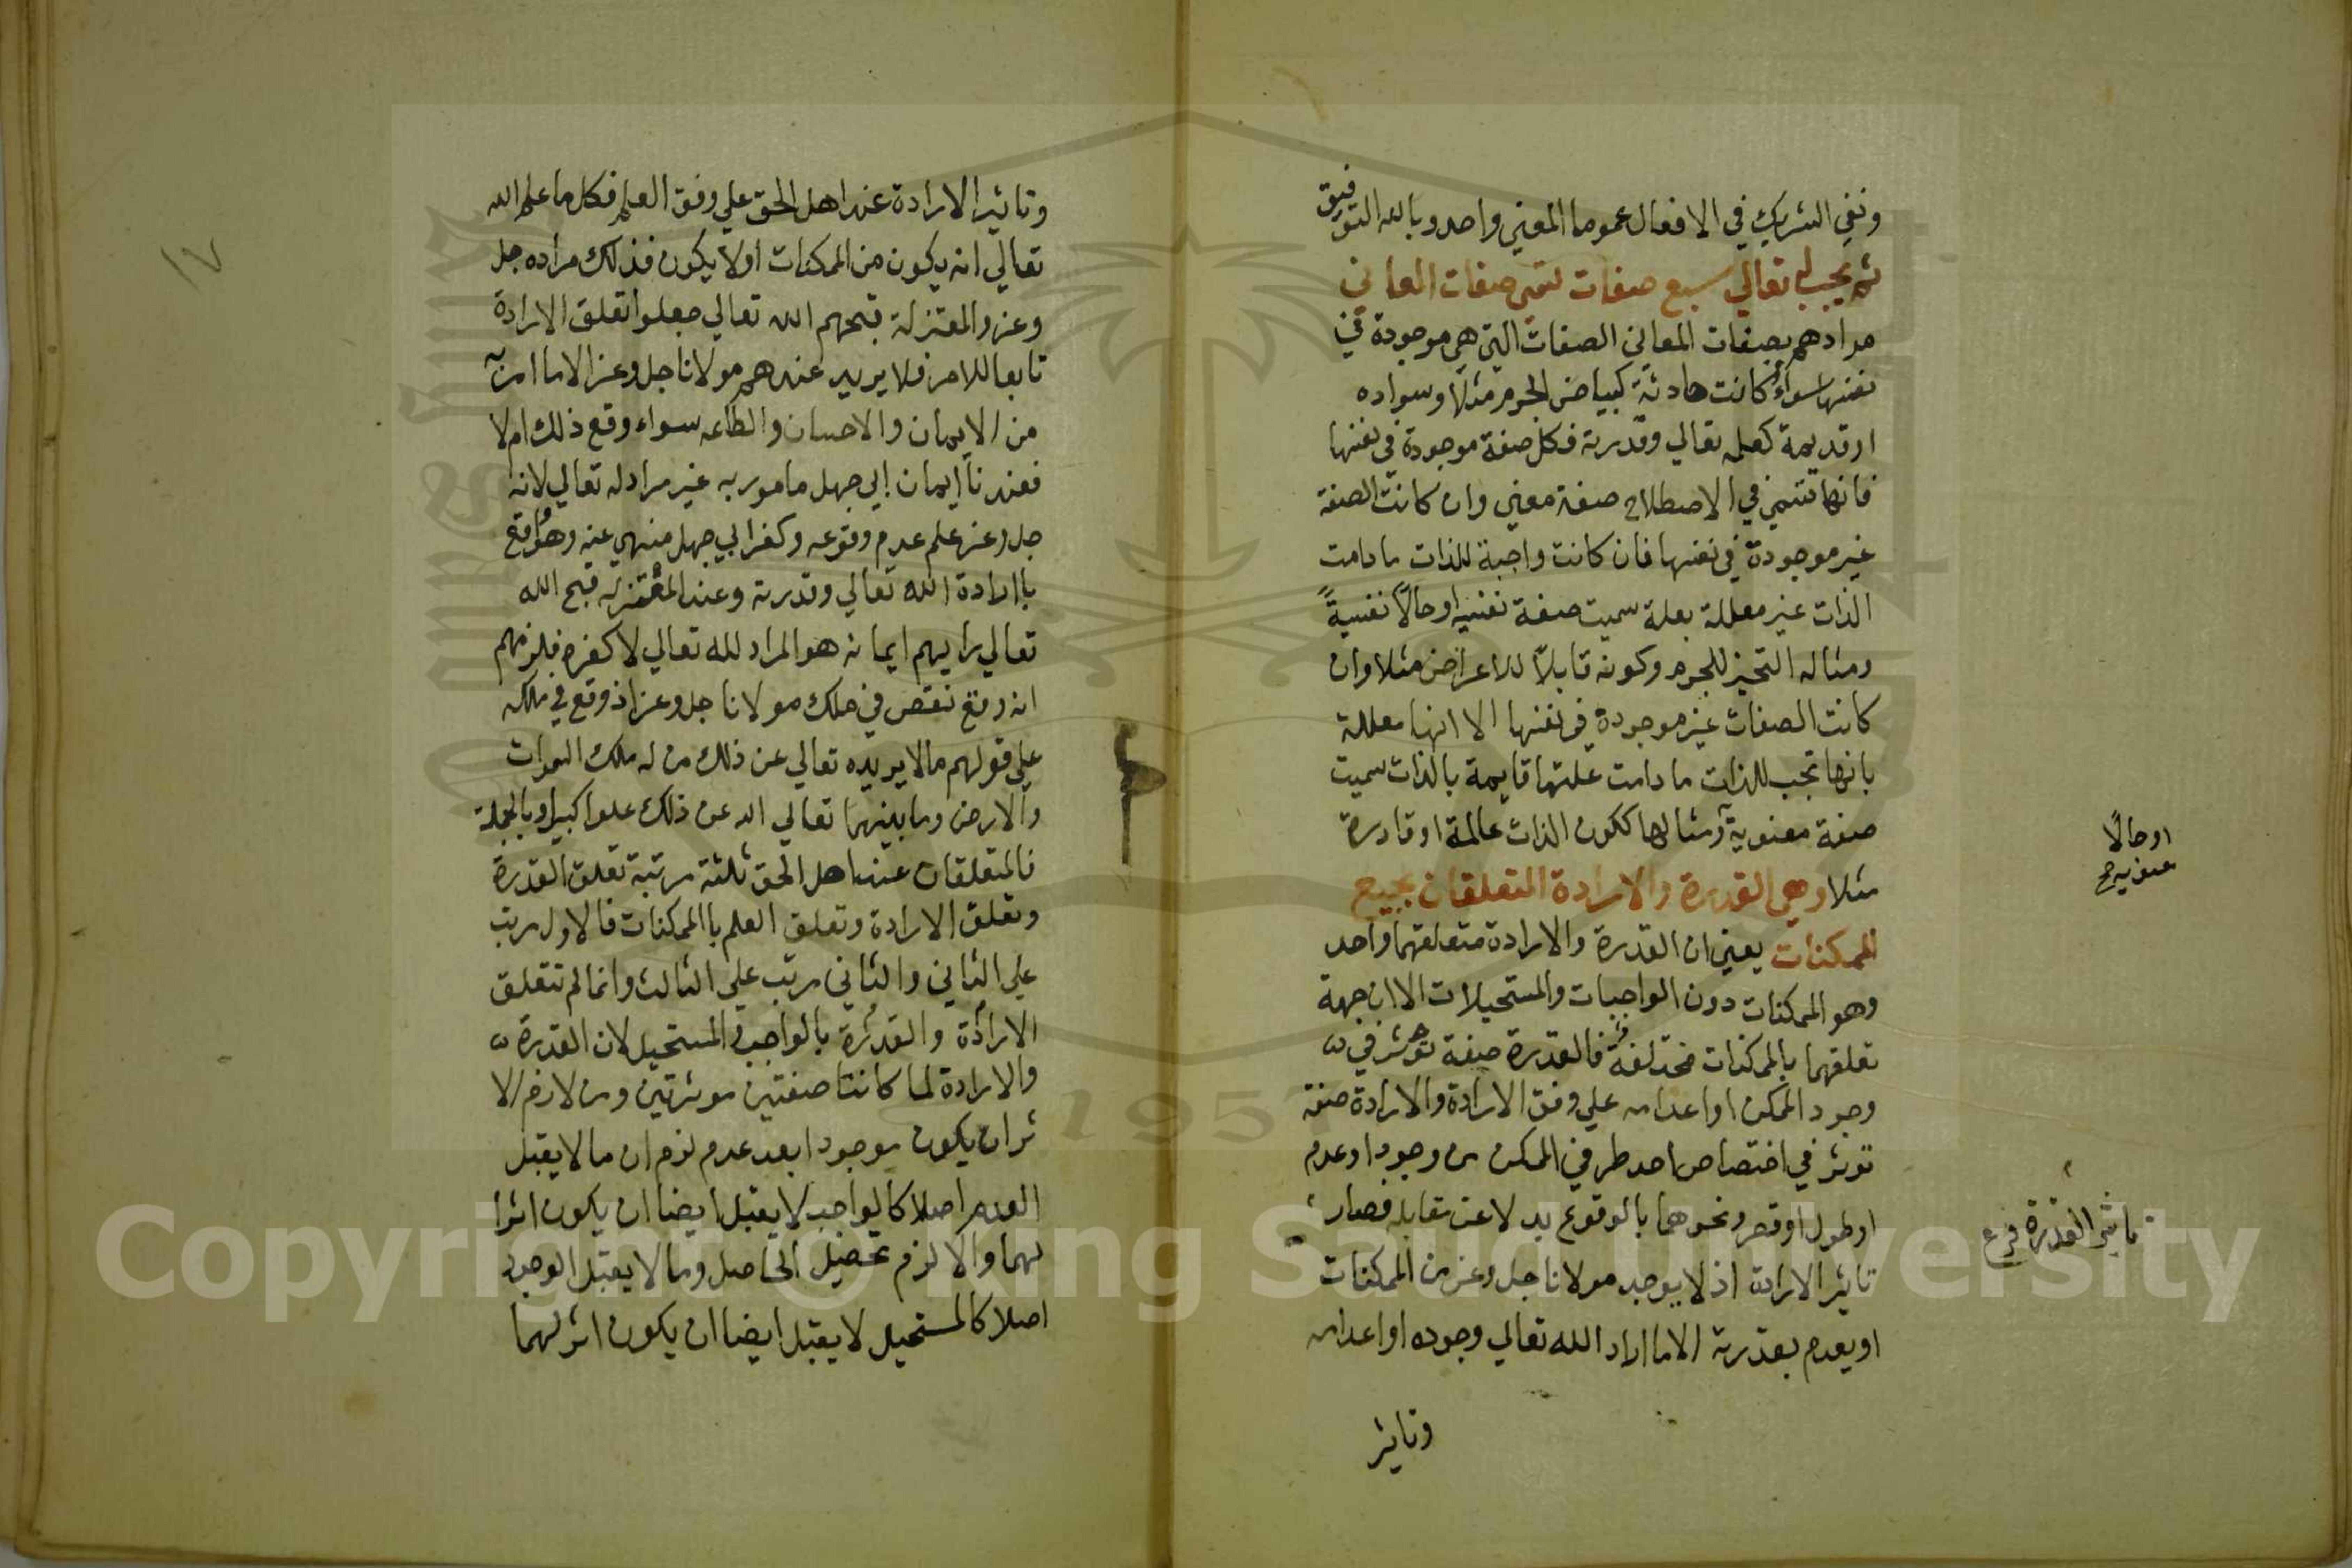 ونفي الشريك في الافعال عموما المعني واحد وبالله التوفيق
ثم يجب له تعالي سبع صفات تسمي صفات المعاني
مرادهم بصفات المعاني الصفات التي هي موجودة في
نفسها سواء كانت حادثة كبياض الجرم مثلا وسواده
او قديمة كعلمه تعالي وقدرته فكل صفة موجودة في نفسها
فانها تسمي في الاصطلاح صفة معني وان كانت الصفة
غير موجودة في نفسها فان كانت واجبة للذات ما دامت
الذات غير معللة بعلة سميت صفة نفسية او حالا نفسية
ومثاله التحيز للجرم وكونه قابلا للاعراض مثلا وان
كانت الصفات غير موجودة في نفسها الا انها معللة
بانها تجب للذات ما دامت علتها قايمة بالذات سميت
صفة معنوية ومثالها ككون الذات عالمة او قادرة
او حالا
معنوية صح
مثلا وهي القدرة والارادة المتعلقان بجميع
الممكنات يعني ان القدرة والارادة متعلقهما واحد
وهو الممكنات دون الواجبات والمستحيلات الا ان جهة
تعلقهما بالممكنات مختلفة فالقدرة صفة تؤثر في
وجود الممكن او اعدامه علي وفق الارادة والارادة صفة
توثر في اختصاص احد طرفي الممكن من وجود او عدم
او طول او قصر ونحوهما بالوقوع بدلا عن مقابله فصار
تاثير القدرة فرع
تاثير الارادة اذ لا يوجد مولانا جل وعز من الممكنات
او يعدم بقدرته الا ما اراد الله تعالي وجوده او اعدامه
وتاثير
١٧
وتاثير الارادة عند اهل الحق علي وفق العلم فكل ما علم الله
تعالي انه يكون من الممكنات او لا يكون فذلك مراده جل
وعز والمعتزلة قبحهم الله تعالي جعلوا تعلق الارادة
تابعا للامر فلا يريد عندهم مولانا جل وعز الا ما امر به
من الايمان والاحسان والطاعه سواء وقع ذلك ام لا
فعندنا ايمان ابي جهل مامور به غير مراد له تعالي لانه
جل وعز علم عدم وقوعه وكفر ابي جهل منهي عنه وهو واقع
باارادة الله تعالي وقدرته وعند المعتزله قبح الله
تعالي رايهم ايمانه هو المراد لله تعالي لا كفره فلزمهم
انه وقع نقص في ملك مولانا جل وعز اذ وقع في ملكه
علي قولهم ما لا يريده تعالي عن ذلك من له ملك السموات
والارض وما بينهما تعالي الله عن ذلك علوا كبيرا وبالجملة
فالمتعلقات عند اهل الحق ثلثة مرتبة تعلق القدرة
وتعلق الارادة وتعلق العلم باالممكنات فالاول مرتب
علي الثاني والثاني مرتب علي الثالث وانما لم تتعلق
الارادة والقدرة بالواجب والمستحيل لان القدرة
والارادة لما كانتا صفتين موثرتين ومن لازم الا
ثر ان يكون موجودا بعد عدم لزم ان ما لا يقبل
العدم اصلا كالواجب لا يقبل ايضا ان يكون اثرا
لهما والا لزم تحصيل الحاصل وما لا يقبل الوجود
اصلا كالمستحيل لا يقبل ايضا ان يكون اثر لهما
Copyright © King Saud University
1957